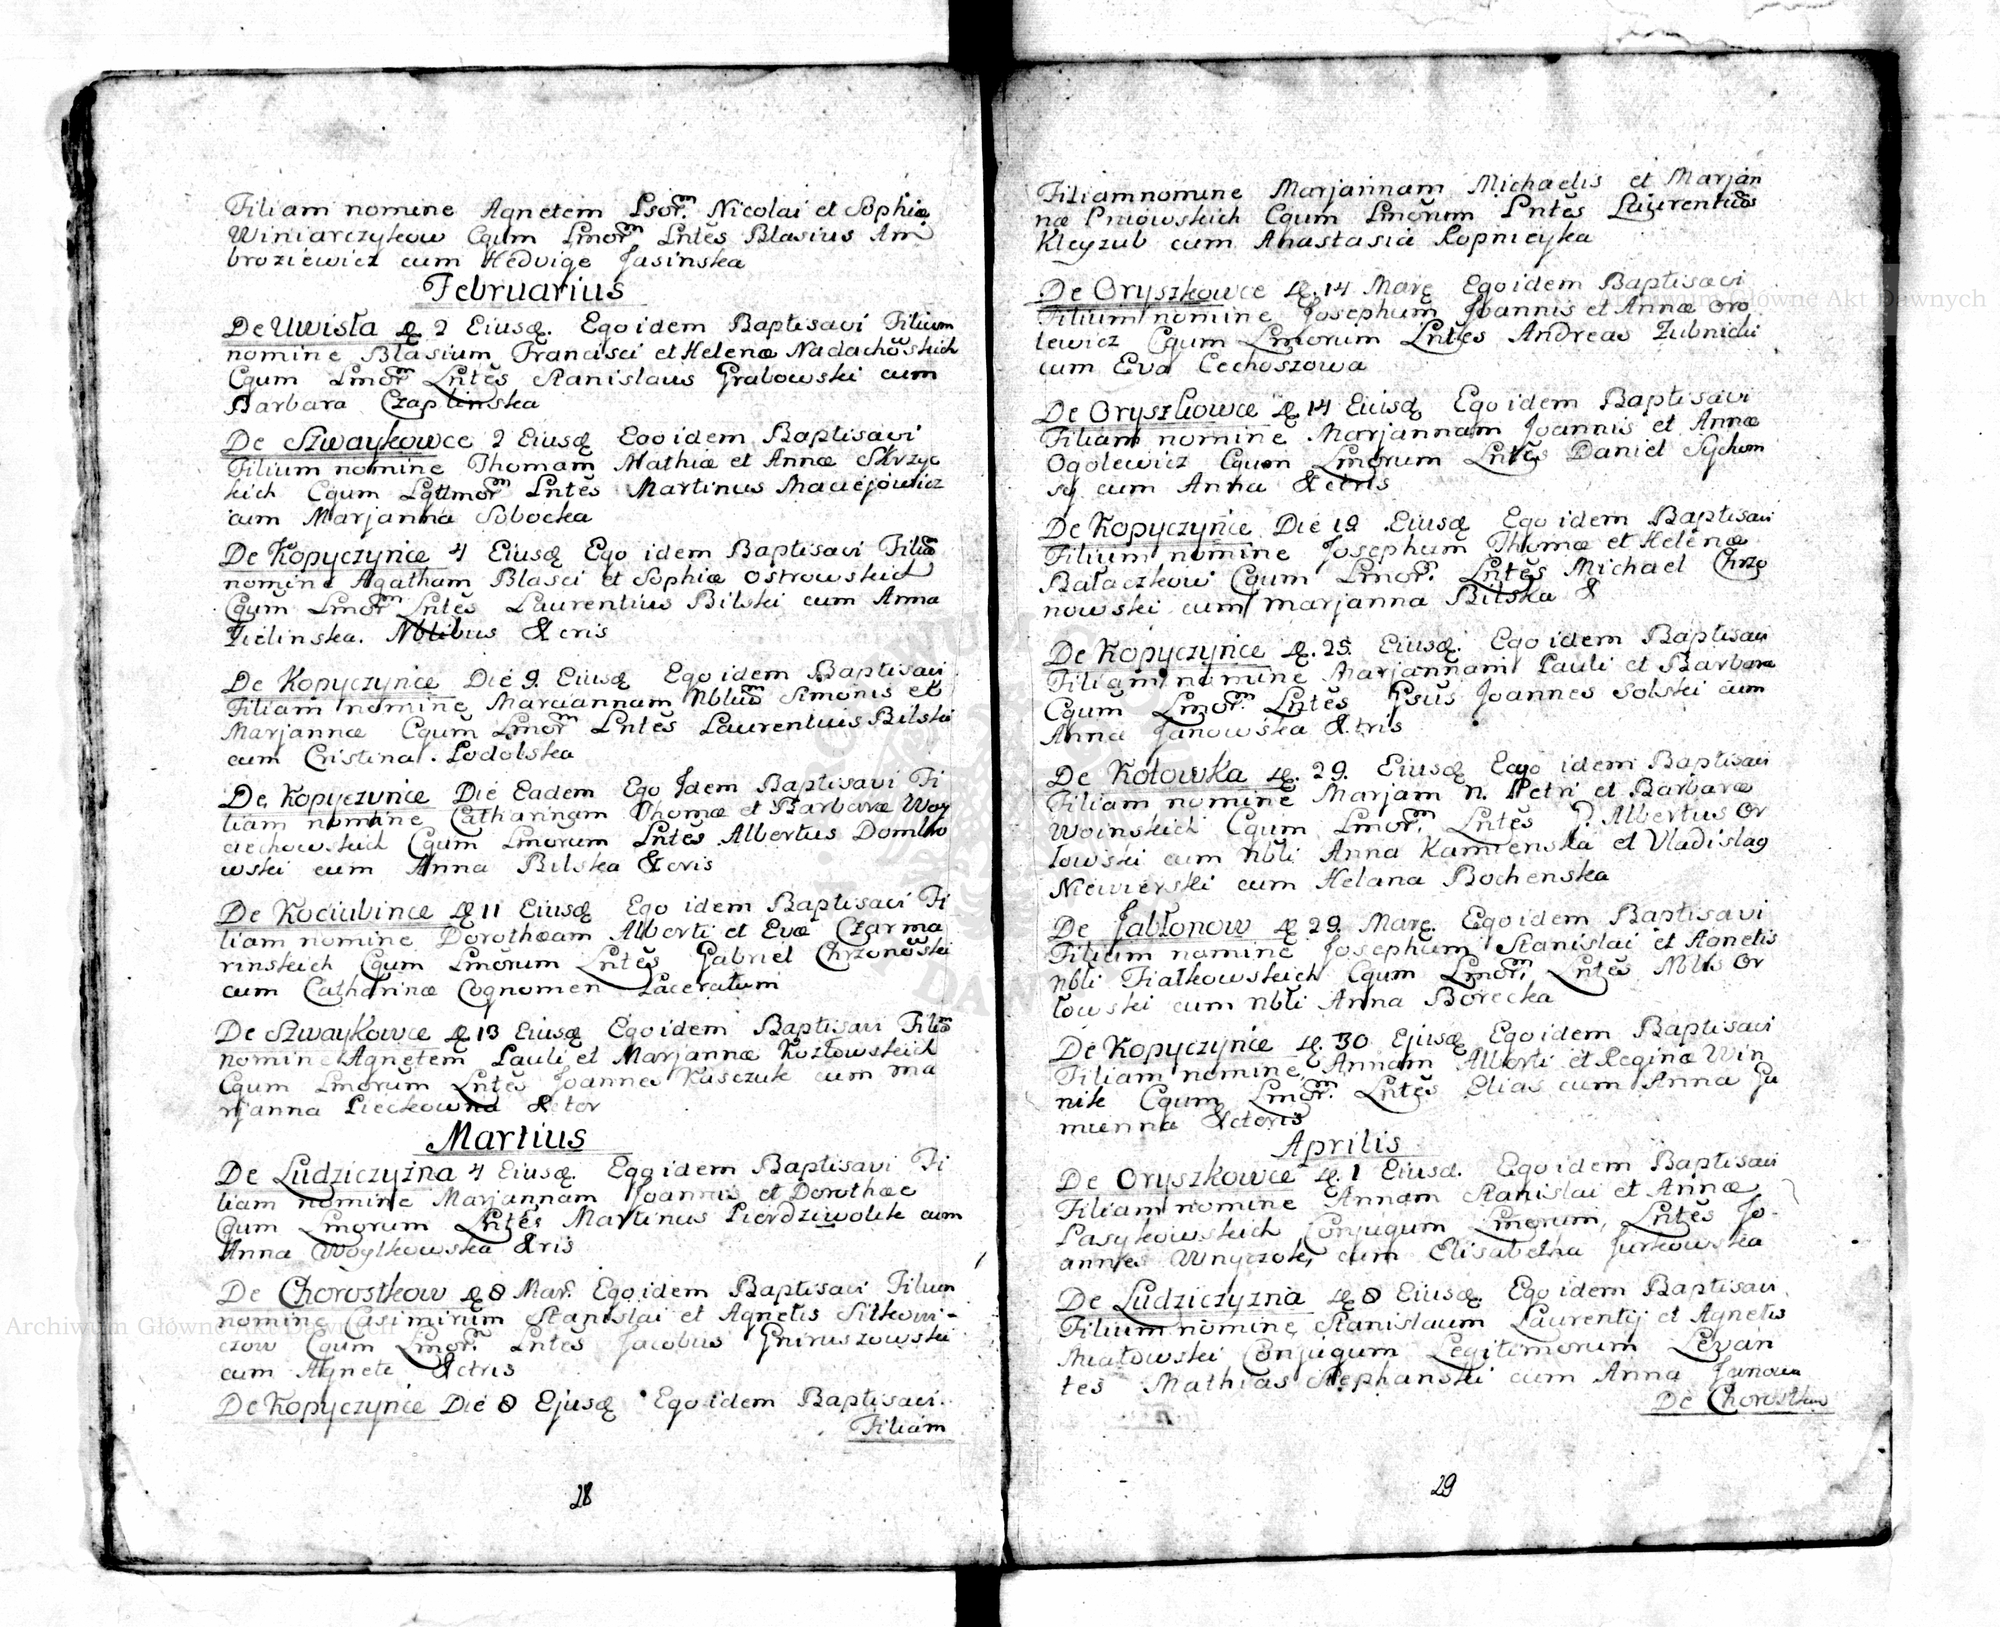 Filiam nomine Agnetem Lsor̃m Nicolai et Sophiæ
Winiarczykow Cgum Lmor̃m Lntes Blasius Am
broziewicz cum Hedvige Jasinska
Februarius
De Uwisla D. 2 Eiusq. Ego idem Baptisavi Filium
nomine Blasium Francisci et Helenæ Nadachowskich
Cgum Lmor̃m Lntes Stanislaus Grabowski cum
Barbara Czaplinska
De Szwaykowce 2 Eiusq Ego idem Baptisavi
Filium nomine Thomam Mathiæ et Annæ Skrzyc
kich Cgum Lgtimor̃m Lntes Martinus Maciejowicz
cum Marjanna Sobocka
De Kopyczynce 4 Eiusq Ego idem Baptisavi Filiã
nomine Agatham Blasei et Sophiæ Ostrowskich
Cgum Lmor̃m Lntes Laurentius Bilski cum Anna
Zielinska. Nblibus &cris
De Kopyczynce Die 9. Eiusq Ego idem Baptisavi
Filiam nomine Mariannam Nbliũm Simonis et
Marjannæ Cgum Lmor̃m Lntes Laurentius Bilski
cum Cristina. Podolska
De Kopyczynce Die Eadem Ego Idem Baptisavi Fi
liam nomine Catharinam Thomæ et Barbaræ Woy
ciechowskich Cgum Lmorum Lntes Albertus Dombro
wski cum Anna Bilska &cris
De Kociubince D 11 Eiusq Ego idem Baptisavi Fi
liam nomine Dorotheam Alberti et Evæ Czarma
rinskich Cgum Lmorum Lntes Gabriel Chrzonowski
cum Catharinæ Cognomen Laceratum
De Szwaykowce D 13 Eiusq Ego idem Baptisavi Filiã
nomine Agnetem Pauli et Marjannæ Kozlowskich
Cgum Lmorum Lntes Joannes Kusczuk cum Ma
rjanna Pieckowna &ctor
Martius
De Ludziczyzna 4 Eiusq. Ego idem Baptisavi Fi
liam nomine Marjannam Joannis et Dorothæ
Cgum Lmorum Lntes Martinus Pierdziwolk cum
Anna Woylkowska &ris
De Chorostkow D 8 Mar. Ego idem Baptisavi Filium
nomine Casimirum Stanislai et Agnetis Sitkowi-
czow Cgum Lmor̃m Lntes Jacobus Gniruszowski
cum Agnete &ctris
De Kopyczynce Die 8 Ejusq Ego idem Baptisavi.
Filiam
28
Filiam nomine Marjannam Michaelis et Marjan
næ Pniowskich Cgum Lmorum Lntes Laurentius
Kleyzub cum Anastasia Kopnicyka
De Oryszkowce D. 14 Marę Ego idem Baptisavi
Filium nomine Josephum Joannis et Annæ Oro
lewicz Cgum Lmorum Lntes Andreas Zubnicki
cum Eva Cechoszowa
De Oryszkowce D 14 Eiusq Ego idem Baptisavi
Filiam nomine Marjannam Joannis et Annæ
Ogolewicz Cgum Lmorum Lntes Daniel Sychom
sy cum Anna &ctris
De Kopyczynce Die 19 Eiusq Ego idem Baptisavi
Filium nomine Josephum Thomæ et Helenæ
Bałaczkow Cgum Lmor̃. Lntes Michael Chrzo
nowski cum Marjanna Bilska &
De Kopyczynce D. 25. Eiusq. Ego idem Baptisavi
Filiam nomine Marjannam Pauli et Barbara
Cgum Lmor̃m Lntes Gsus Joannes Solski cum
Anna Janowska &tris
De Kotowka D. 29. Eiusq Ego idem Baptisavi
Filiam nomine Marjam N. Petri et Barbaræ
Woinskich Cgum Lmor̃m Lntes P. Albertus Or
lowski cum Nbli Anna Kamienska et Vladislag
Niewierski cum Helana Bochenska
De Jabłonow D 29. Marę. Ego idem Baptisavi
Filium nomine Josephum Stanislai et Agnetis
Nbli Fiałkowskich Cgum Lmor̃m Lntes Nblis Or
lowski cum Nbli Anna Borecka
De Kopyczynce D. 30 Ejusq Ego idem Baptisavi
Filiam nomine Annam Alberti et Reginæ Win
nik Cgum Lmor̃m Lntes Elias cum Anna Gu
mienna &ctoris
Aprilis
De Oryszkowce D. 1 Eiusd. Ego idem Baptisavi
Filiam nomine Annam Stanislai et Annæ
Pasykowskich Conjugum Lmorum, Lntes Jo-
annes Wnyczok, cum Elisabetha Jurkowska
De Ludziczyzna D 8 Eiusq. Ego idem Baptisavi.
Filium nomine Stanislaum Laurentij et Agnetis
Małowski Conjugum Legitimorum Levan
tes Mathias Stephanski cum Anna Janowa
De Chorostkow
29
Archiwum Główne Akt Dawnych
Archiwum Główne Akt Dawnych